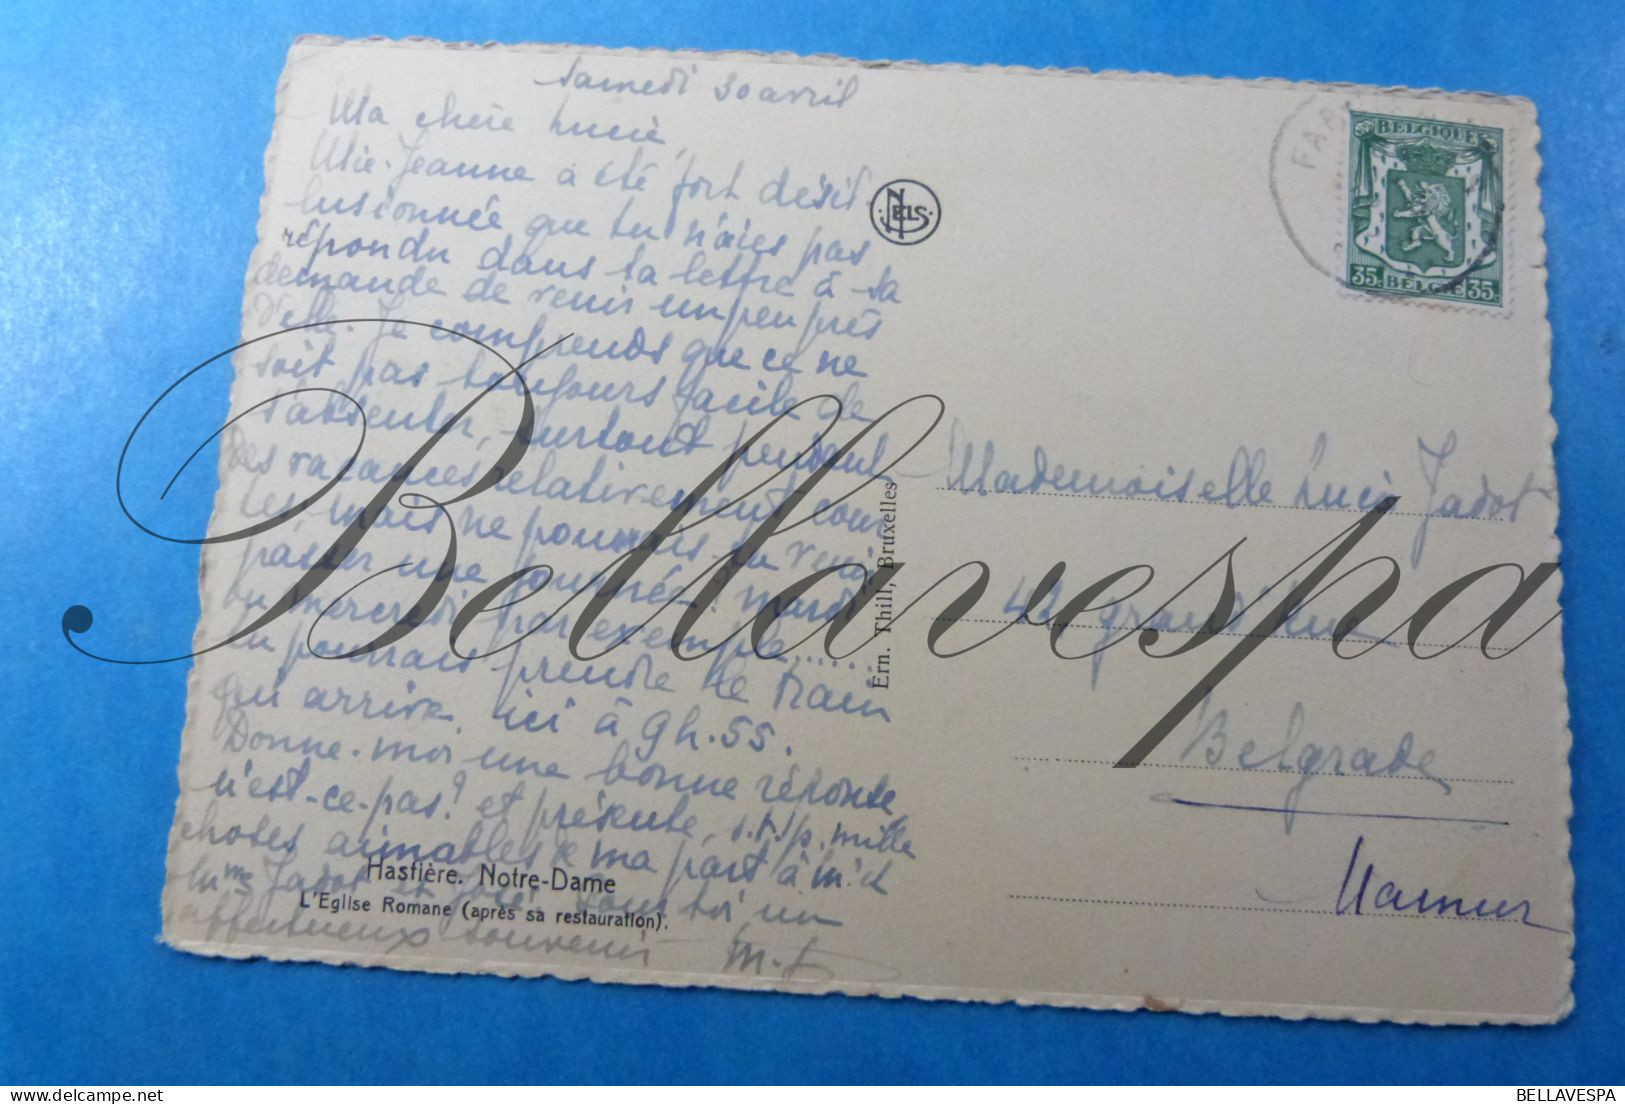 Samedi 30 avril
Ma chère Lucie,
Mie-Jeanne a été fort désil-
lusionnée que tu n'aies pas
répondu dans ta lettre à sa
demande de venir un peu près
d'elle. Je comprends que ce ne
soit pas toujours facile de
s'absenter, surtout pendant
des vacances relativement cour-
tes, mais ne pourrais-tu venir
passer une journée? mardi
ou mercredi par exemple.......
tu pourrais prendre le train
qui arrive ici à 9h.55.
Donne-moi une bonne réponse
n'est-ce-pas? et présente, s.t.p. mille
choses aimables de ma part à M. et
Mme Jadot et José. Pour toi un
affectueux souvenir M.J.
Hastière. Notre-Dame
L'Eglise Romane (après sa restauration).
NELS
Ern. Thill, Bruxelles
BELGIQUE
35 BELGIE 35
Mademoiselle Lucie Jadot
42, grand'Rue
Belgrade
Namur
Bellavespa
BELLAVESPA